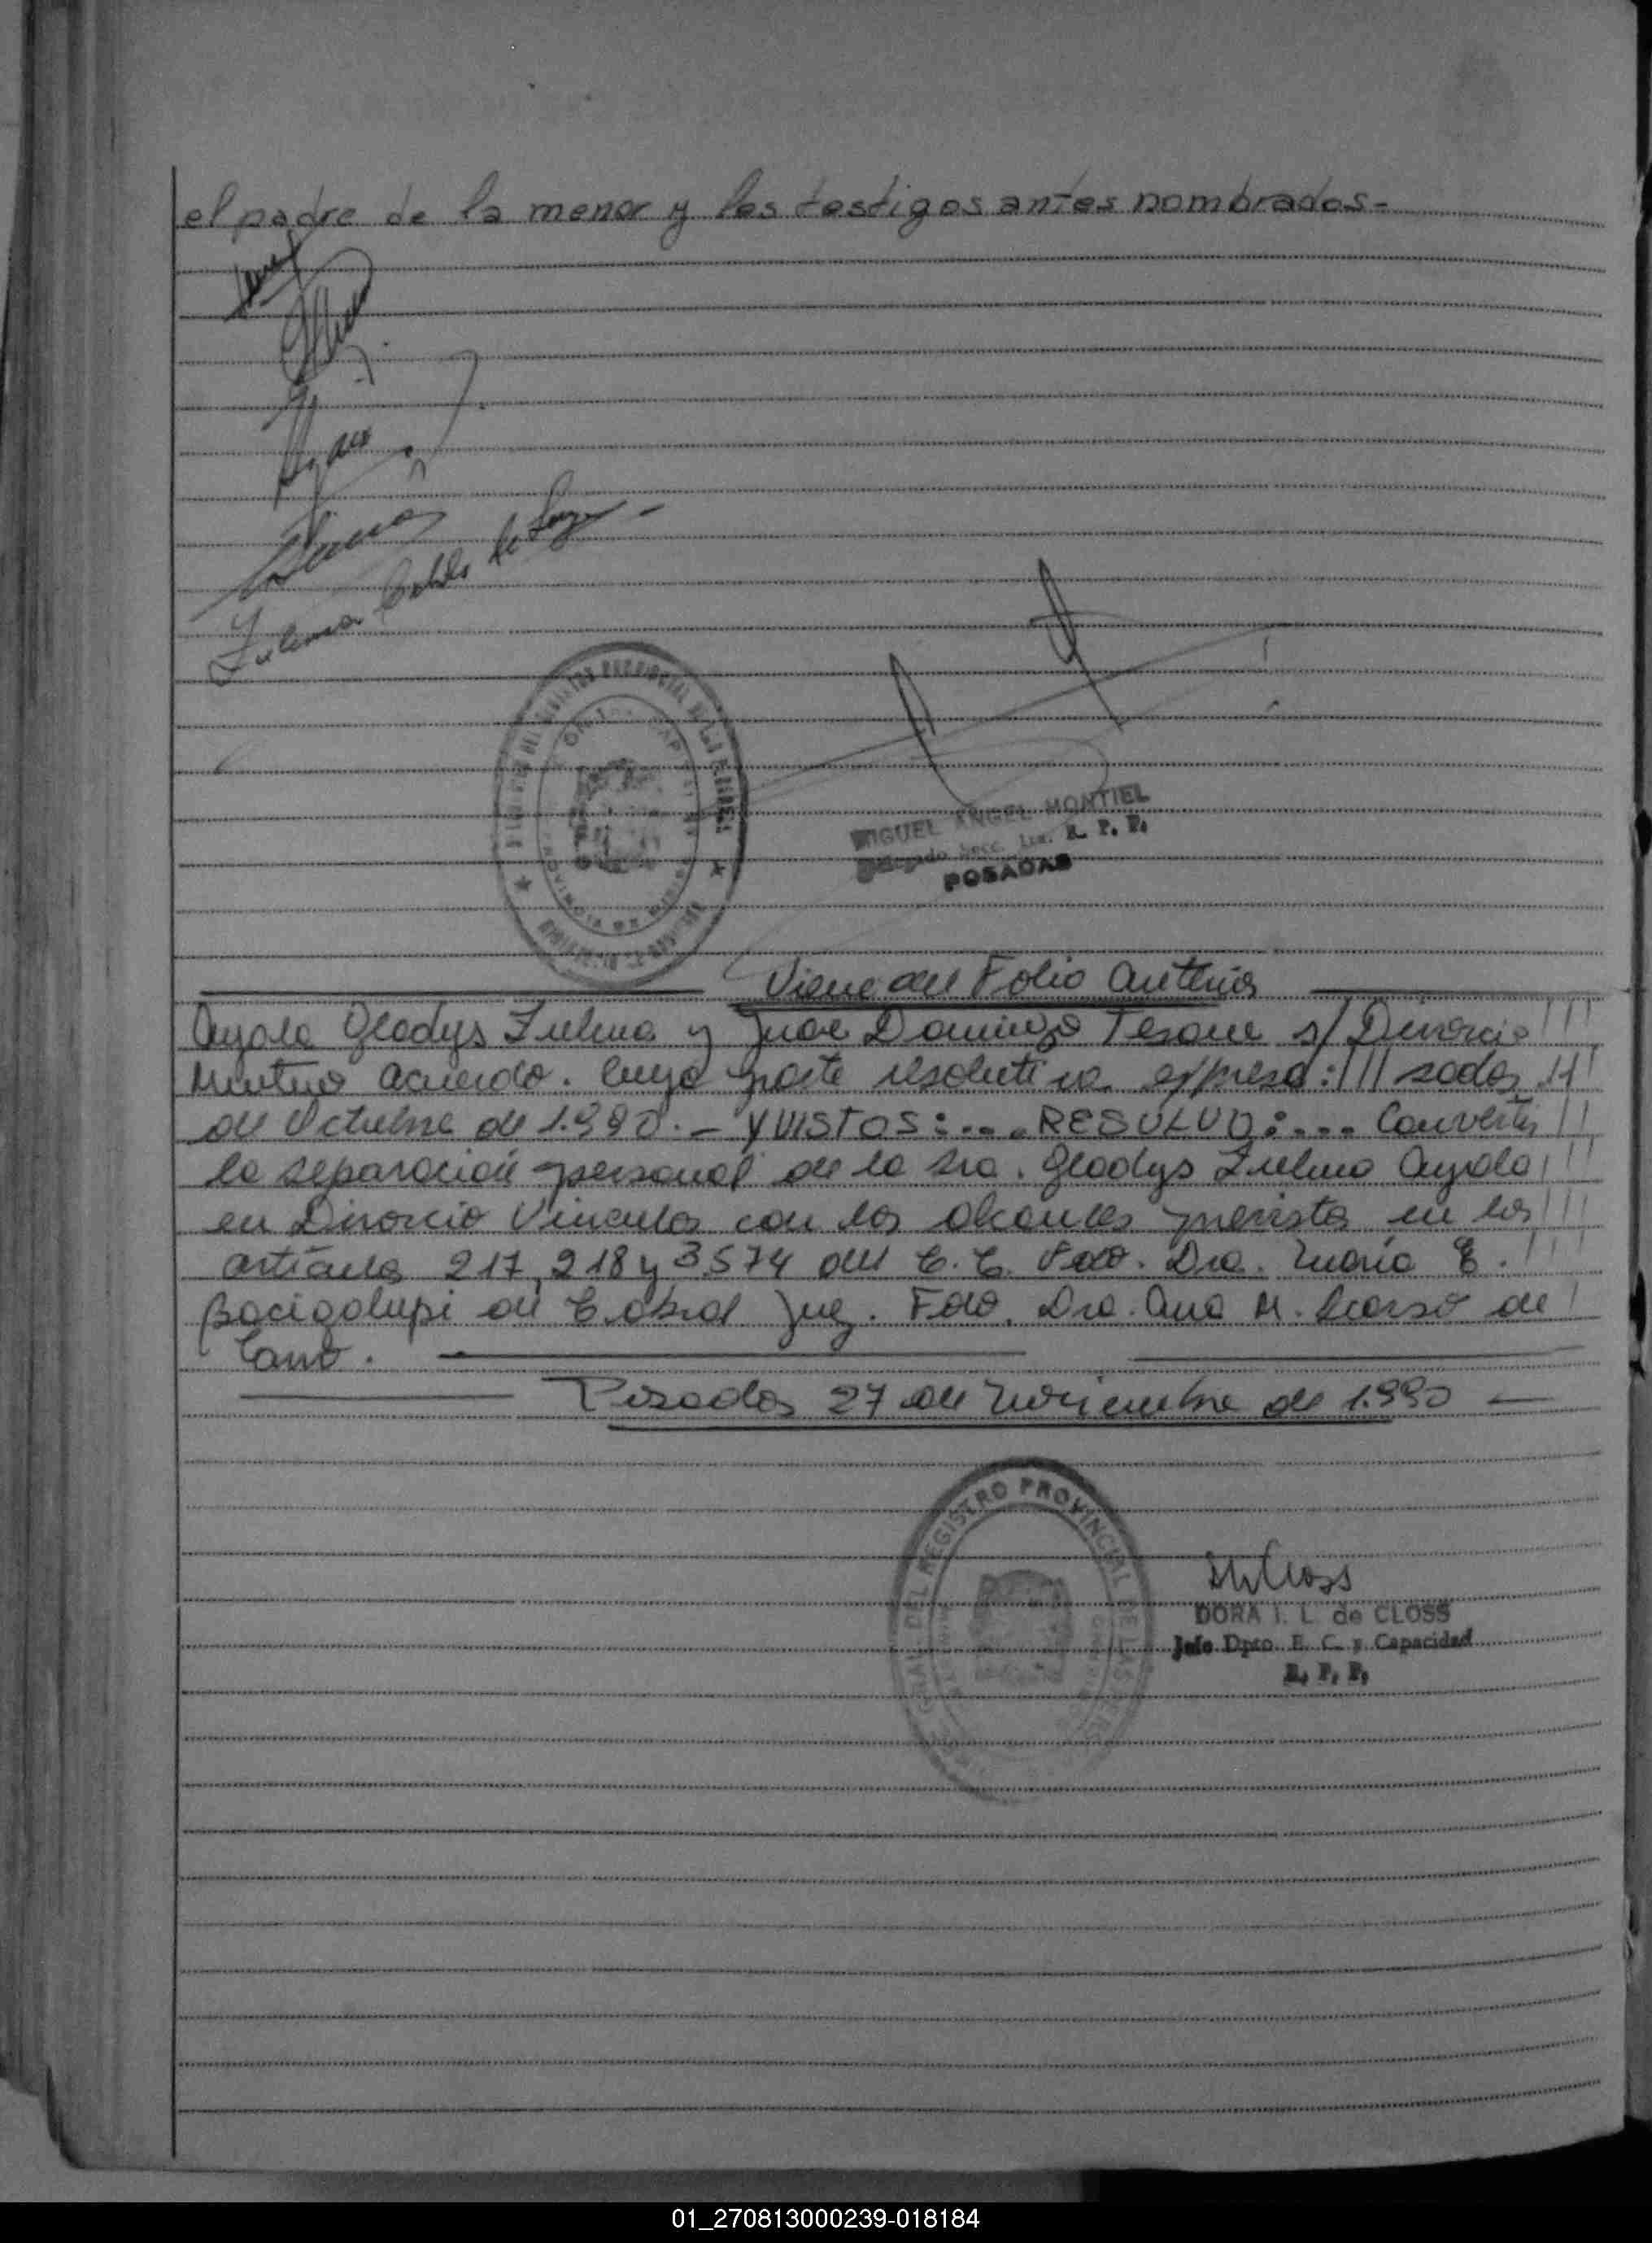 el padre de la menor y los testigos antes nombrados-
Zulema
MIGUEL ANGEL MONTIEL
R. P. P.
POSADAS
Viene del Folio Anterior
Ayala Gladys Zulma y Juan Domingo s/ Divorcio
Mutuo acuerdo. Cuya parte resolutiva expresa: /// sadas 11
de Octubre de 1.990.- Y VISTOS:... RESULVO:... Convertir
la separación personal de la sra. Gladys Zulma Ayala
en Divorcio Vincular con los alcances previstos en los
artículos 217, 218 y 3574 del C.C. Fdo. Dra. María E.
Bacigalupi de Cabral Juez. Fdo. Dra. Ana M. de
Cano.
Posadas 27 de Noviembre de 1.990
REGISTRO PROVINCIAL DE LAS
DORA I. L. de CLOSS
Jefe Dpto. E. C. y Capacidad
R. P. P.
01_270813000239-018184